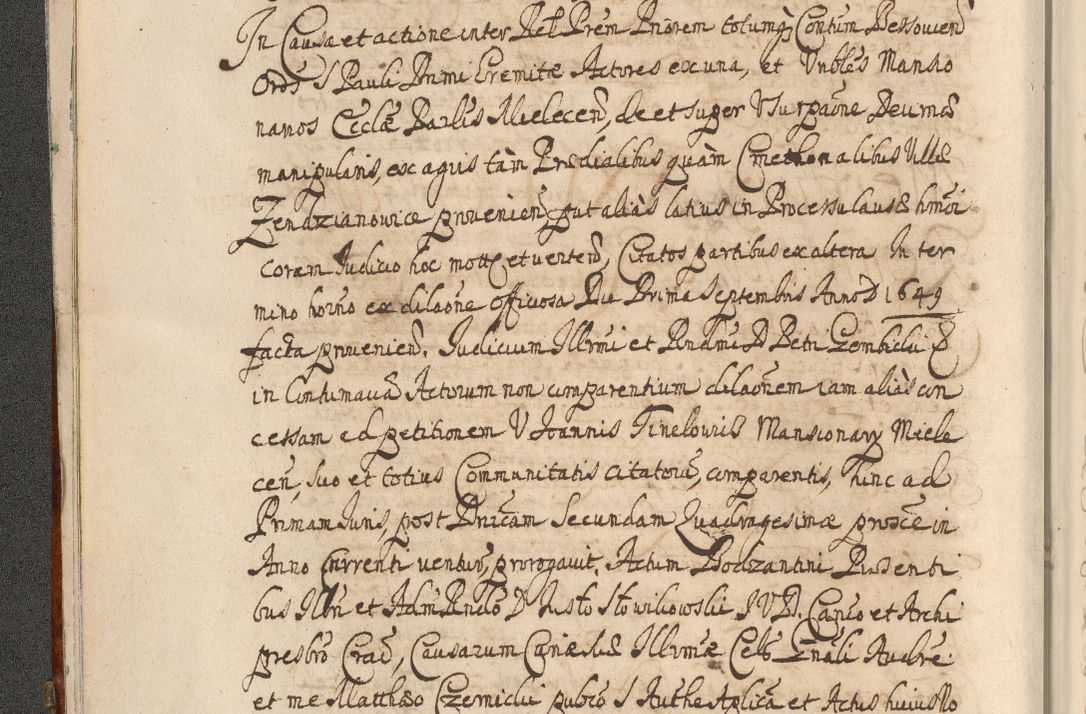 In Causa et actione inter Rel Prem Priorem totumq Contum Bessovien
Ordis S Pauli Primi Eremitæ Actores ex una, et Vnbles Mansio
narios Ecclæ Parlis Mielecen, de et super Vsurpaõne Decimæ
manipularis, ex agris tàm Prædialibus quàm Cmethonalibus Villæ
Zendzianowice provenien, put aliàs latius in Processu lausæ hmõi
coram Iudicio hoc motæ et verten, Citatos partibus ex altera In ter
mino horno ex dilaõne officiosa Die Prima Septembris Anno D 1649
facta provenien. Iudicium Illrmi et Rndmi D Petri Gembicki E
in Contumaciã Actorum non comparentium dilaõnem iam aliàs con
cessam ed petitionem V Ioannis Tinelouris Mansionary Miele
cen, suo et totius Communitatis citatorũ, comparentis, hinc ad
Primam Iuris, post Dnicam Secundam Quadragesimæ proxẽ in
Anno Currenti ventur, prorogavit. Actum Bodzantini Præsenti
bus Illri et Adm Rndo D Iusto Słowikowski I V D. Canco et Archi
presbro Crac, Causarum Curiæ suæ Illrmæ Cels Gnãli Audre
et me Matthæo Czernicki pubco S Authe Aplica et Actus huiusmo